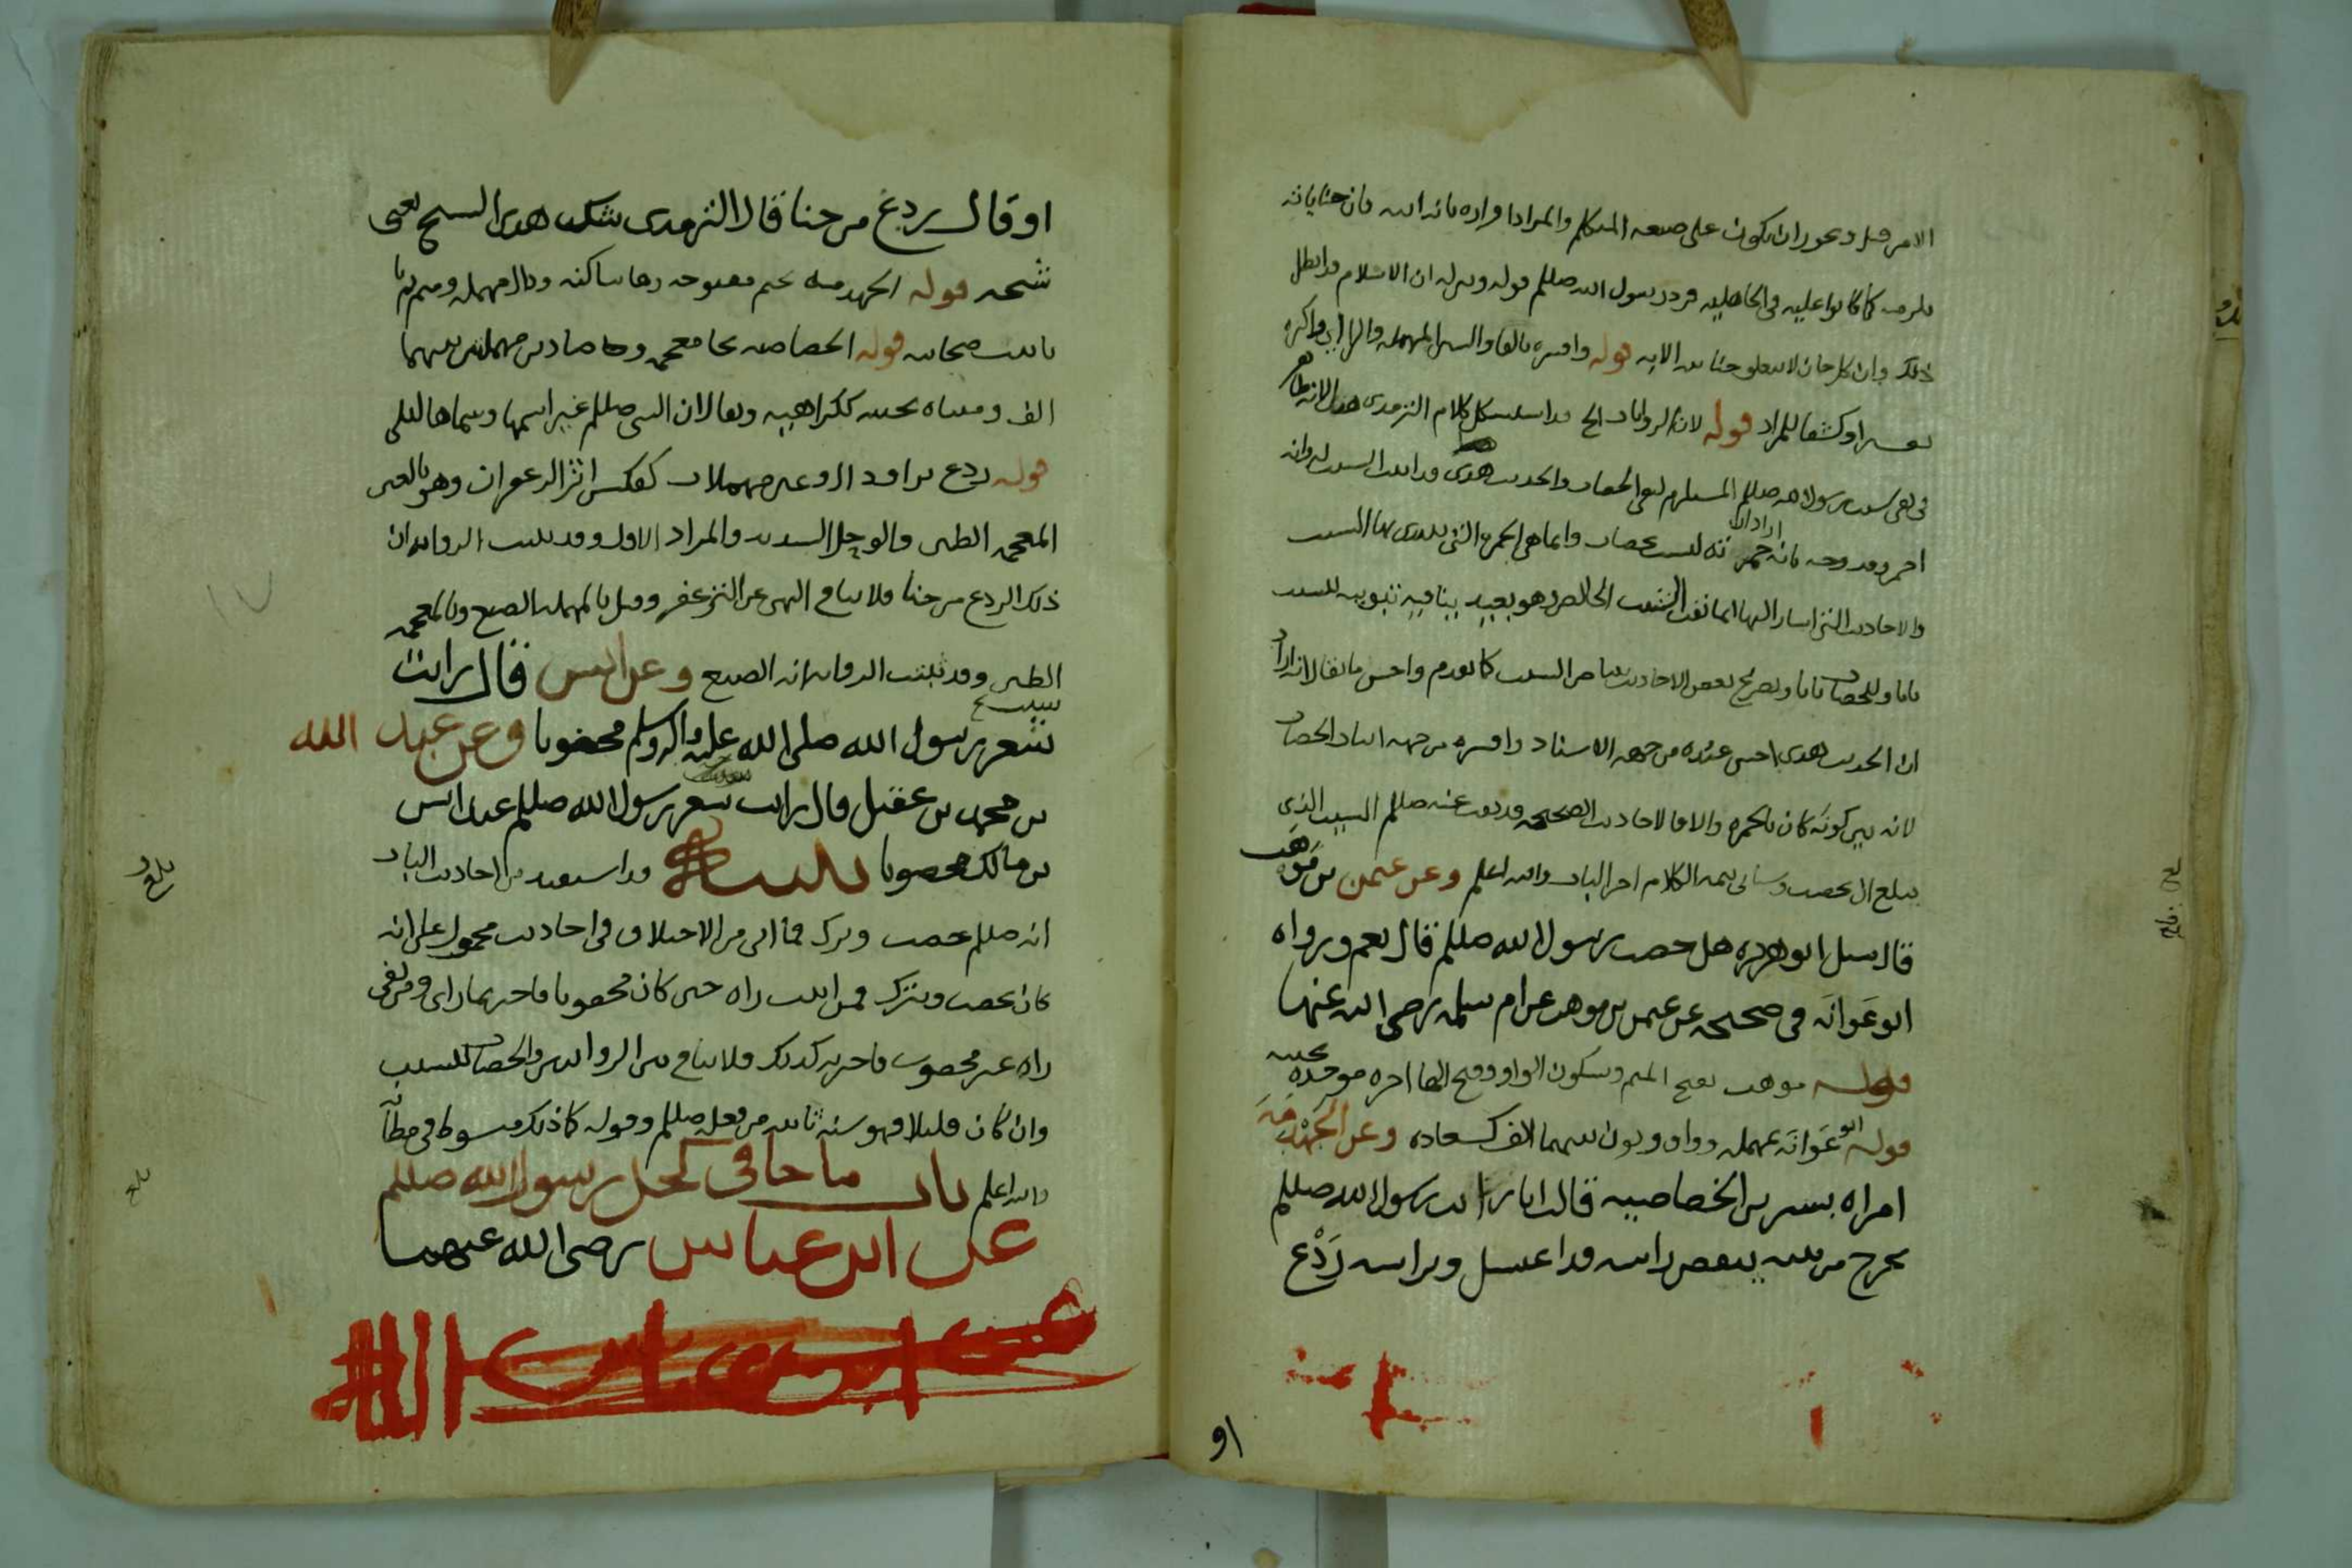 الامر قيل ويجوز ان يكون على صيغة المتكلم والمراد اقراره بانه ابنه فان جناياته
ملزمه كما كانوا عليه في الجاهلية فرد رسول الله صللم قوله وبين له ان الاسلام قد ابطل
ذلك وان كل جان لا يتعلق جنايته الا به قوله وافسره بالفاء والسين المهملة والراء اي واكثره
تفسيرا وكشفا للمراد قوله لان الروايات الخ قد استشكل كلام الترمذي هذا لانه ظاهر
في نفي شيب رسول الله صللم المستلزم لنفي الخضاب والحديث هذا قد اثبت الشيب له وانه
احمر وقد وجه بانه اراد ان حمرته ليست بخضاب وانما هي الحمرة التي يبتدى بها الشيب
والاحاديث التي اشار اليها انما نفت الشيب الخالص وهو بعيد ينافيه تبويبه للشيب
بابا وللخضاب بابا وتصريح بعض الاحاديث بما من الشيب كما تقدم واحسن ما يقال انه اراد
ان الحديث هذا احسن عنده من جهة الاسناد وافسره من جهة اثبات الخضاب
لانه بين كونه كان بالحمرة والا فالاحاديث الصحيحة قد نفت عنه صللم الشيب الذي
يبلغ ان يخضب وسياتي تتمة الكلام اخر الباب والله اعلم وعن عثمن بن موهب
قال سئل ابو هريرة هل خضب رسول الله صللم قال نعم ورواه
ابو عوانة في صحيحه عن عثمن بن موهب عن ام سلمة رضي الله عنها
قوله موهب بفتح الميم وسكون الواو وفتح الهاء اخره موحدة
قوله ابو عوانة بمهملة وواو ونون بينهما الف كسعادة وعن الجهدمة
امراة بشير بن الخصاصية قالت انا رايت رسول الله صللم
يخرج من بيته ينفض راسه وقد اغتسل وبراسه ردع
او
او قال ردغ من حنا قال الترمذي شك هذا الشيخ يعني
شيخه قوله الجهدمة بجيم مفتوحة وهاء ساكنة ودال مهملة وميم ثم تا
تانيث صحابية قوله الخصاصية بخا معجمة وصادين مهملتين بينهما
الف ومثناة تحتية ككراهية ويقال ان النبي صللم غير اسمها وسماها ليلى
قوله ردع براء ودال وعين مهملات كفلس اثر الزعفران وهو بالغين
المعجمة الطين والوحل الشديد والمراد الاول وقد بينت الرواية ان
ذلك الردع من حنا فلا ينافي النهي عن التزعفر وقيل بالمهملة الصبغ وبالمعجمة
الطين وقد ثبتت الرواية انه الصبغ وعن انس قال رايت
شعر رسول الله صلى الله عليه واله وسلم مخضوبا وعن عبد الله
بن محمد بن عقيل قال رايت شعر رسول الله صللم عند انس
بن مالك مخضوبا تنبيه قد استفيد من احاديث الباب
انه صللم خضب وترك فما اتى من الاختلاف في احاديث محمول على انه
كان يخضب ويترك فمن اثبت راه حين كان مخضوبا فاخبر بما راى ومن نفى
راه غير مخضوب فاخبر كذلك فلا ينافي بين الروايتين والخضاب للشيب
وان كان قليلا فهو سنة ثابتة من فعله صللم وقوله كما ذلك مبسوط في مظانه
والله اعلم باب ما جا في كحل رسول الله صللم
عن ابن عباس رضي الله عنهما
بلغ
بلغ